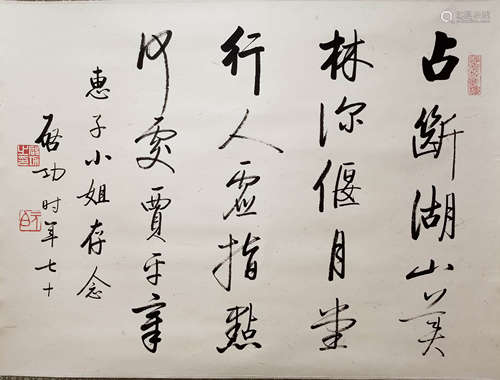 占断湖山美
林深偃月堂
行人虚指点
何处贾平章
惠子小姐存念
启功时年七十